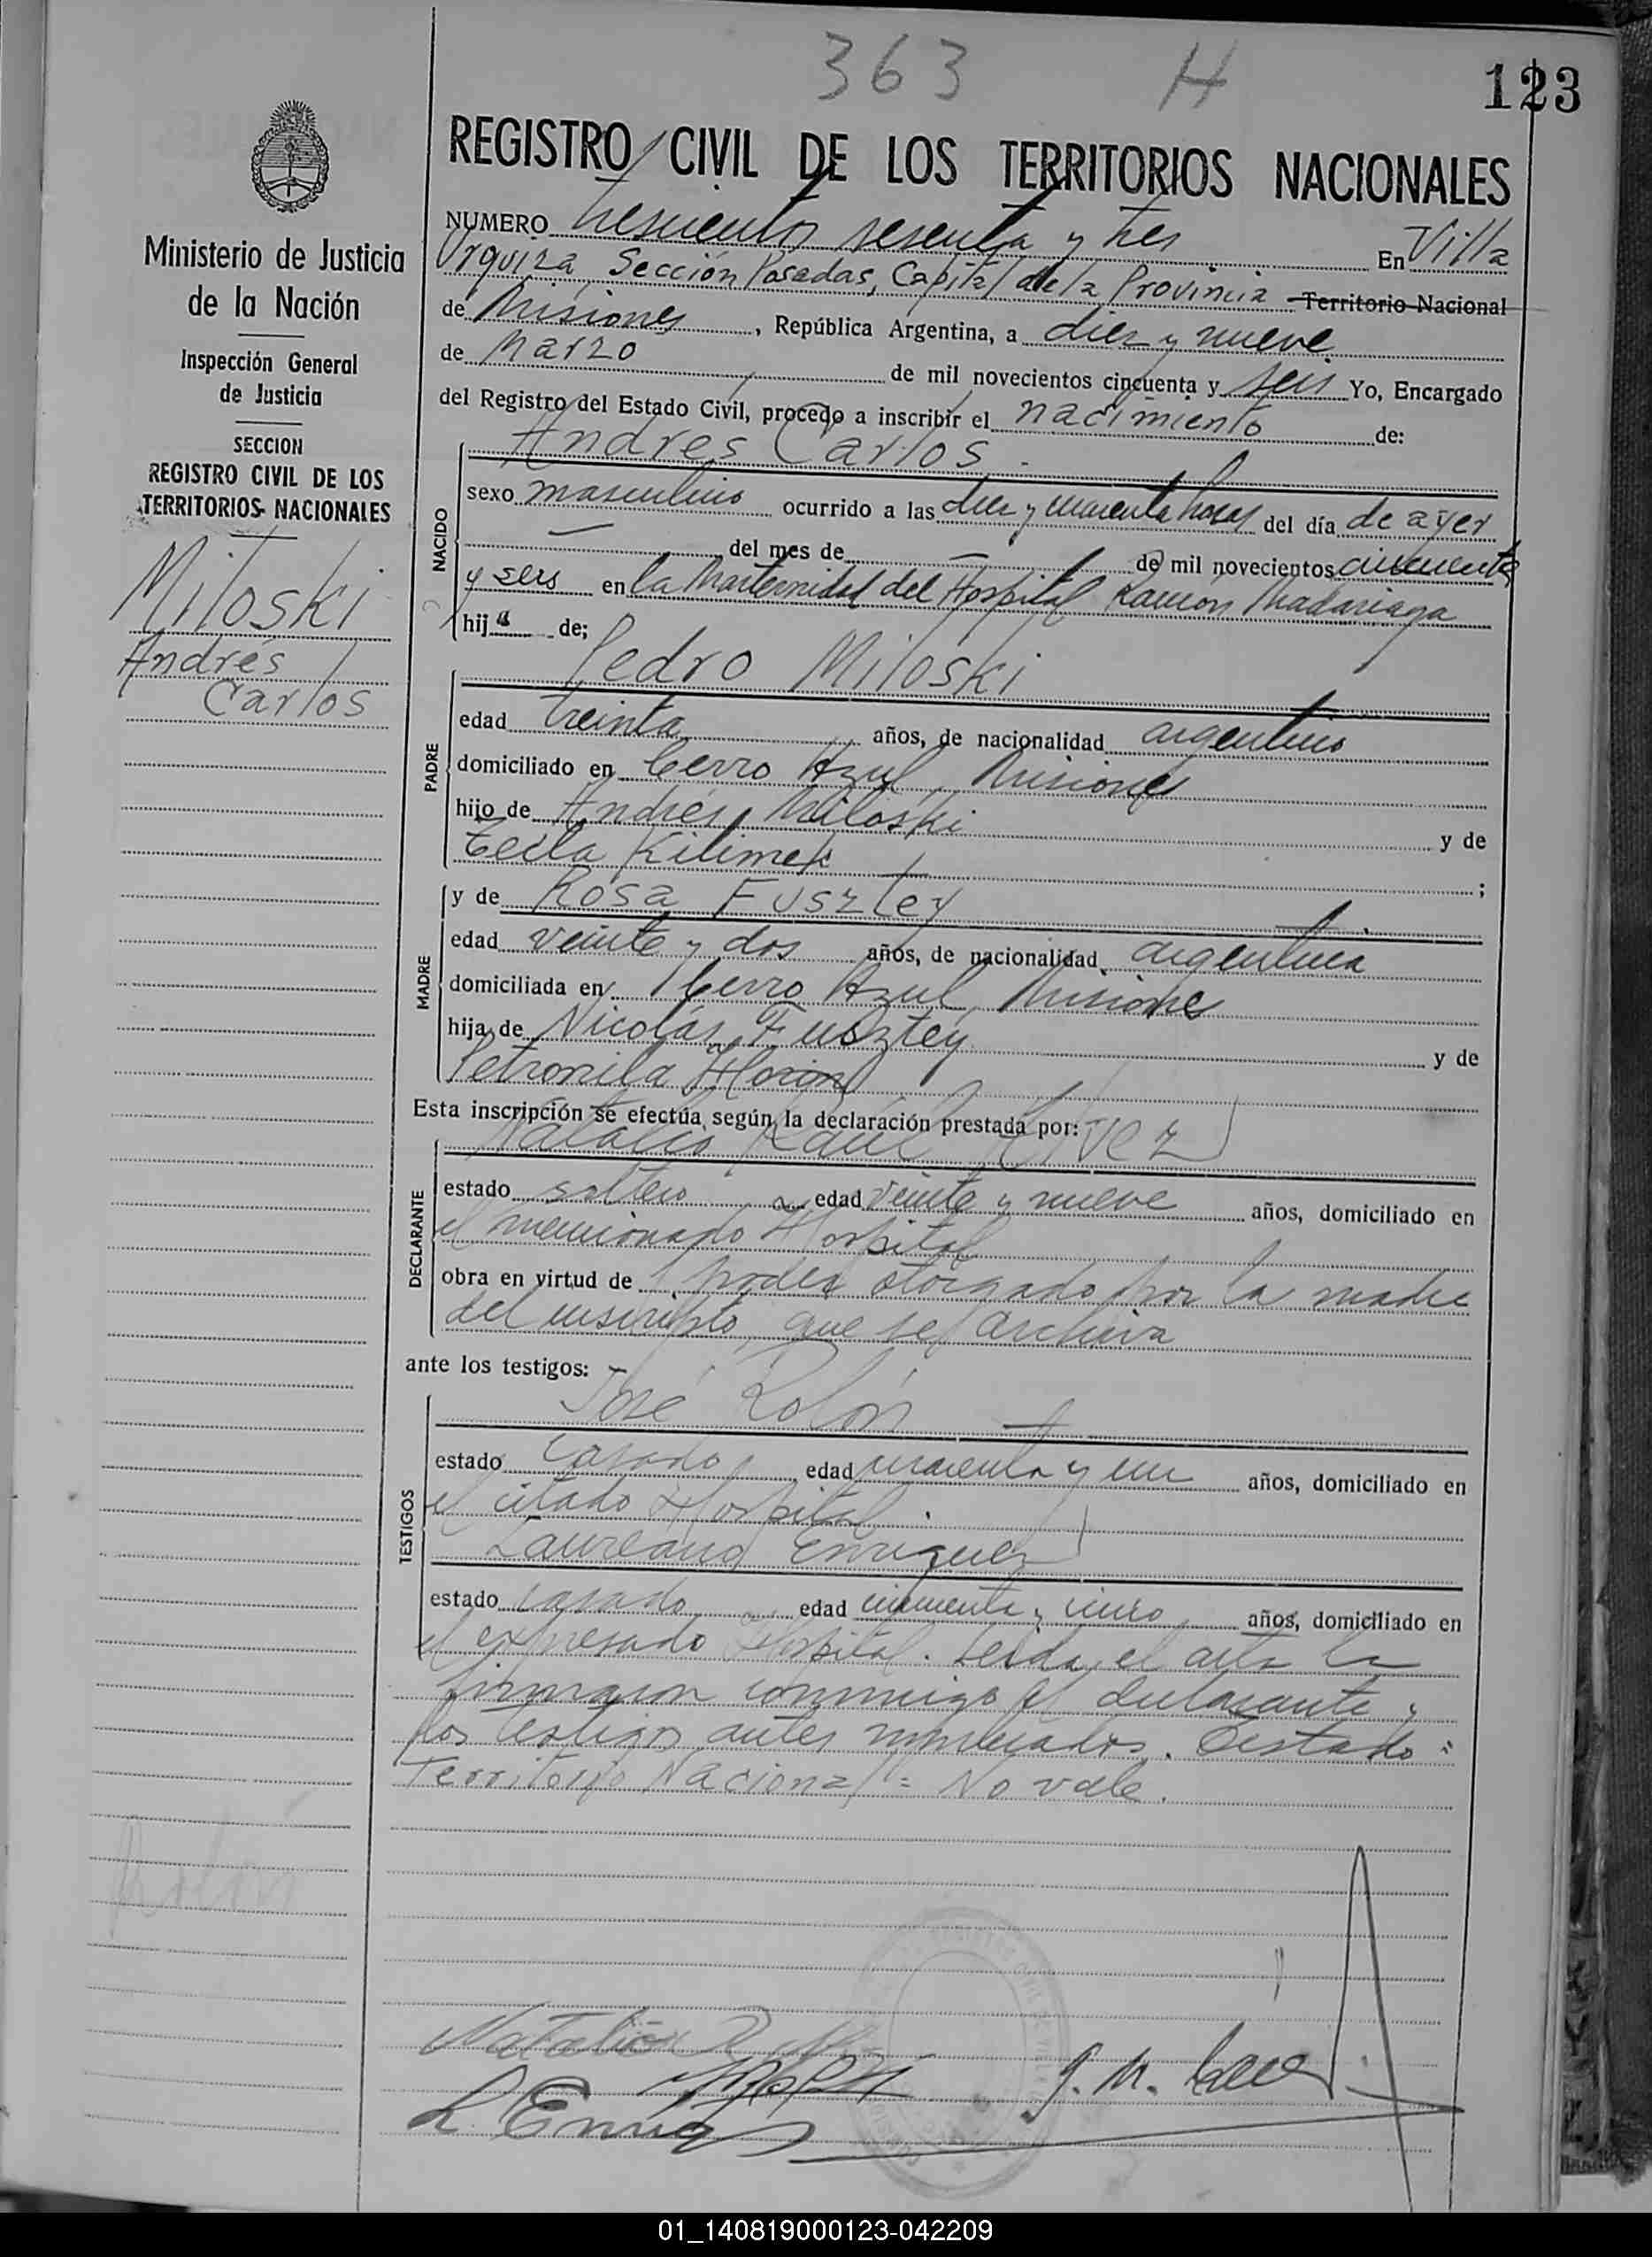 363 H 123
REGISTRO CIVIL DE LOS TERRITORIOS NACIONALES
Ministerio de Justicia
de la Nación
Inspección General
de Justicia
SECCION
REGISTRO CIVIL DE LOS
TERRITORIOS NACIONALES
Miloski
Andrés
Carlos
NUMERO trescientos sesenta y tres En Villa
Urquiza Sección Posadas, Capital de la Provincia Territorio Nacional
de Misiones, República Argentina, a diez y nueve
de Marzo de mil novecientos cincuenta y seis Yo, Encargado
del Registro del Estado Civil, procedo a inscribir el nacimiento de:
Andres Carlos.
NACIDO
sexo masculino ocurrido a las diez y cuarenta horas del día de ayer
— del mes de — de mil novecientos cincuenta
y seis en la Marternidad del Hospital Ramón Madariaga
hij de;
Pedro Miloski
PADRE
edad treinta años, de nacionalidad argentino
domiciliado en Cerro Azul, Misiones
hijo de Andrés Miloski y de
Tecla Kilimek ;
MADRE
y de Rosa Fusztey
edad veinte y dos años, de nacionalidad argentina
domiciliada en Cerro Azul, Misiones
hija de Nicolás Fusztey y de
Petronila
Esta inscripción se efectúa según la declaración prestada por:
Natalio Raúl
DECLARANTE
estado soltero edad veinte y nueve años, domiciliado en
el mencionado Hospital
obra en virtud de poder otorgado por la madre
del inscripto, que se archiva
ante los testigos:
José Rolón
TESTIGOS
estado casado edad cuarenta y un años, domiciliado en
el citado Hospital.
Laureano Enriquez
estado casado edad cincuenta y cinco años, domiciliado en
el expresado Hospital. Leida el acta la
firmaron conmigo el declarante y
los testigos antes nombrados. Testado:
Territorio Nacional = No vale.
Natalio R
L Enriq
01_140819000123-042209